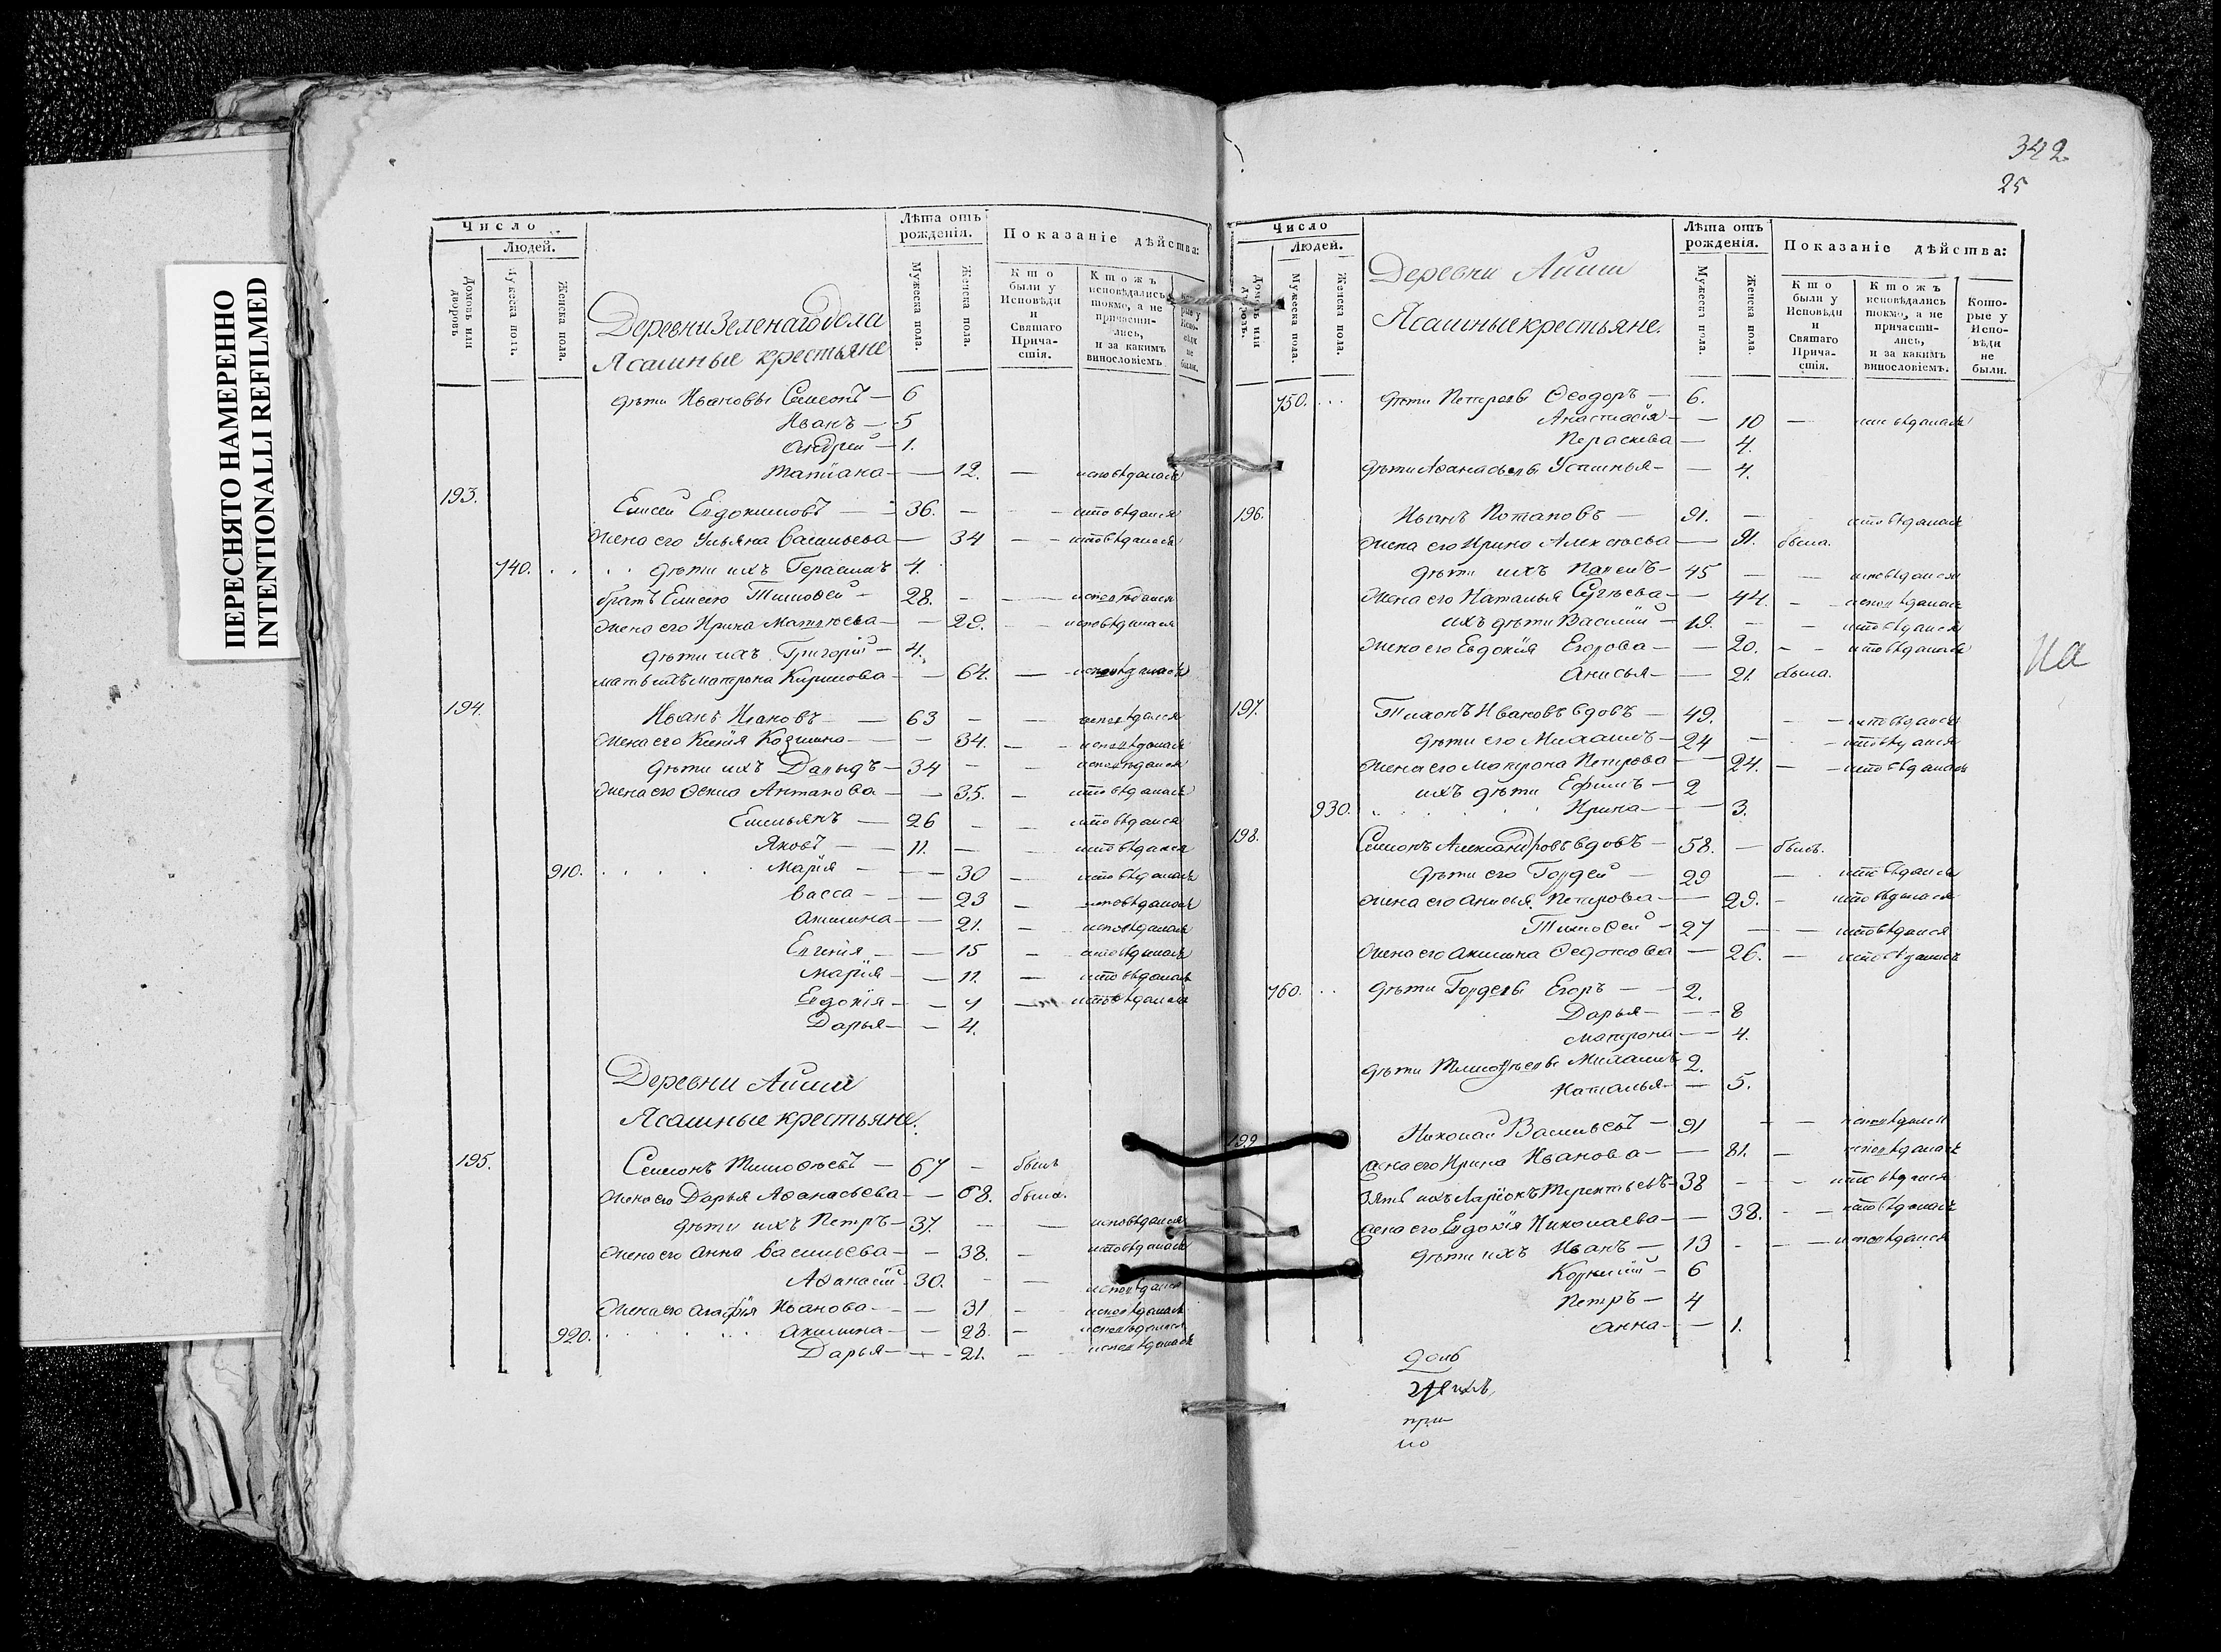 ПЕРЕСНЯТО НАМЕРЕННО
INTENTIONALLI REFILMED
Число
Людей.
Домовъ или дворовъ
Мужеска пола.
Женска пола.
Лѣта отъ рожденія.
Мужеска пола.
Женска пола.
Показаніе дѣйства:
Кто были у Исповѣди и Святаго Причастія.
Ктожъ исповѣдались токмо, а не причастились, и за какимъ винословіемъ
рые у Исповѣди не были.
Деревни Зеленаго дола
Ясашные крестьяне
дѣти Ивановы Симеонъ — 6
Иванъ — 5
Андрей — 1.
Татіана — 12. — исповѣдалась
193. Елисей Евдокимовъ — 36. — исповѣдался
Жена его Ульяна Васильева — 34 — исповѣдалася
740. дѣти ихъ Герасимъ 4.
братъ Елисею Тимофей — 28. — исповѣдался
Жена его Ирина Матвѣева — 29. — исповѣдалася
дѣти ихъ Григорій — 4.
мать ихъ Матрона Кирилова — 64. — исповѣдалась
194. Иванъ Ивановъ — 63 — исповѣдался
Жена его Ксенія Козмина — 34. — исповѣдалась
дѣти ихъ Давыдъ — 34 — исповѣдался
Жена его Антапова — 35. — исповѣдалась
Емельянъ — 26 — исповѣдался
Яковъ — 11. — исповѣдался
910. Марія — 30 — исповѣдалась
Васса — 23 — исповѣдалась
Акилина — 21. — исповѣдалась
Евгенія — 15 — исповѣдалась
Марія — 11. — исповѣдалась
Евдокія — 7 — исповѣдалась
Дарья — 4.
Деревни Айши
Ясашные крестьяне.
195. Симионъ Тимоѳѣевъ — 67 — былъ
Жена его Дарья Аѳанасьева — 68. была.
дѣти ихъ Петръ — 37. — исповѣдался
Жена его Анна Васильева — 38. — исповѣдалась
Аѳанасій — 30. — исповѣдался
Жена его Агафія Иванова — 31 — исповѣдалась
920. Акилина — 23. — исповѣдалася
Дарья — 21. — исповѣдалась
342
25
Число
Людей.
Домовъ или дворовъ.
Мужеска пола.
Женска пола.
Лѣта отъ рожденія.
Мужеска пола.
Женска пола.
Показаніе дѣйства:
Кто были у Исповѣди и Святаго Причастія.
Ктожъ исповѣдались токмо, а не причастились, и за какимъ винословіемъ.
Которые у Исповѣди не были.
Деревни Айши
Ясашные крестьяне.
750. дѣти Петровы Ѳеодоръ — 6.
Анастасія — 10 — исповѣдалась
Пераскева — 4.
дѣти Аѳанасьевы Устинья — 4.
196. Иванъ Потаповъ — 91. — исповѣдался
Жена его Ирина Алексѣева — 91. была.
дѣти ихъ Павелъ — 45 — исповѣдался
Жена его Наталья Сергѣева — 44. — исповѣдалась
ихъ дѣти Василій — 19. — исповѣдался
Жена его Евдокія Егорова — 20. — исповѣдалась
Анисья — 21. была.
на
197. Тихонъ Ивановъ вдовъ — 49. — исповѣдался
дѣти его Михаилъ — 24 — исповѣдался
Жена его Матрона Петрова — 24. — исповѣдалась
ихъ дѣти Ефимъ — 2
930. Ирина — 3.
198. Симионъ Александровъ вдовъ — 58. — былъ.
дѣти его Гордей — 29 — исповѣдался
Жена его Анисья Петрова — 29. — исповѣдалася
Тимоѳей — 27 — исповѣдался
Жена его Акилина Ѳедотова — 26. — исповѣдалась
760. дѣти Гордевы Егоръ — 2.
Дарья — 8
Матрона — 4.
дѣти Тимоѳѣевы Михаилъ 2.
Наталья — 5.
199 Николай Васильевъ — 91 — исповѣдался
Жена его Ирина Иванова — 81. — исповѣдалась
Зять ихъ Ларіонъ Терентьевъ — 38 — исповѣдался
Жена его Евдокія Николаева — 38. — исповѣдалась
дѣти ихъ Иванъ — 13 — исповѣдался
Корнилій — 6
Петръ — 4
Анна — 1.
при
по